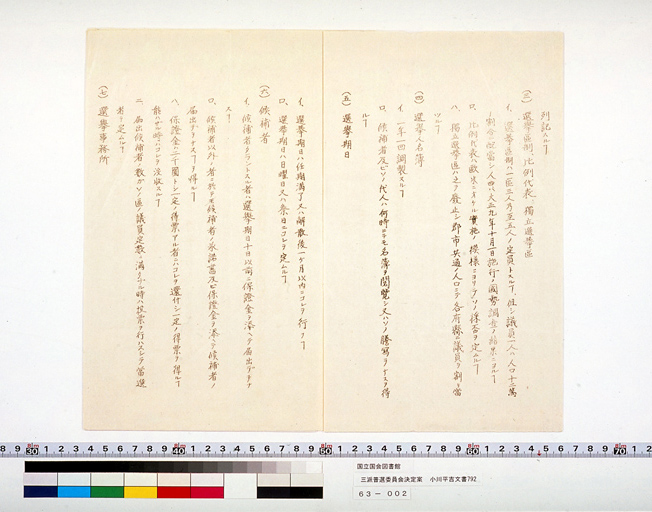 列記スルヿ
(三) 選擧區制、比例代表、獨立選擧區
イ、選擧區制ハ一區三人乃至五人ノ定員トスルヿ、但シ議員一人ハ人口十二萬
ノ割合ニ配當シ人口ハ大正九年十月一日施行ノ國勢調査ノ結果ニヨルヿ
ロ、比例代表ハ歐米ニ於ケル實施ノ模樣ニヨリテソノ採否ヲ定ムルヿ
ハ、獨立選擧區ハ之ヲ廢止シ郡市共通ノ人口ニテ各府縣ニ議員ヲ割リ當
ツルヿ
(四) 選擧人名簿
イ、一年一回調製スルヿ
ロ、候補者及ビソノ代人ハ何時ニテモ名簿ヲ閲覽シ又ハソノ謄寫ヲナスヲ得
ルヿ
(五) 選擧期日
イ、選擧期日ハ任期滿了又ハ解散後一ケ月以内ニコレヲ行フヿ
ロ、選擧期日ハ日曜日又ハ祭日ニコレヲ定ムルヿ
(六) 候補者
イ、候補者タラントスル者ハ選擧期日十日以前ニ保證金ヲ添ヘテ届出デヲナ
スヿ
ロ、候補者以外ノ者ニ於テモ候補者ノ承諾書及ビ保證金ヲ添ヘテ候補者ノ
届出デヲナスヿヲ得ルヿ
ハ、保證金ハ二千圓トシ一定ノ得票アル者ニハコレヲ還付シ一定ノ得票ヲ得ル
能ハザル時ハコレヲ没收スルヿ
ニ、届出候補者ノ數ガソノ區ノ議員定數ニ滿タザル時ハ投票ヲ行ハズシテ當選
者ト定ムルヿ
(七) 選擧事務所
国立国会図書館
三派普選委員会決定案 小川平吉文書792
63－002